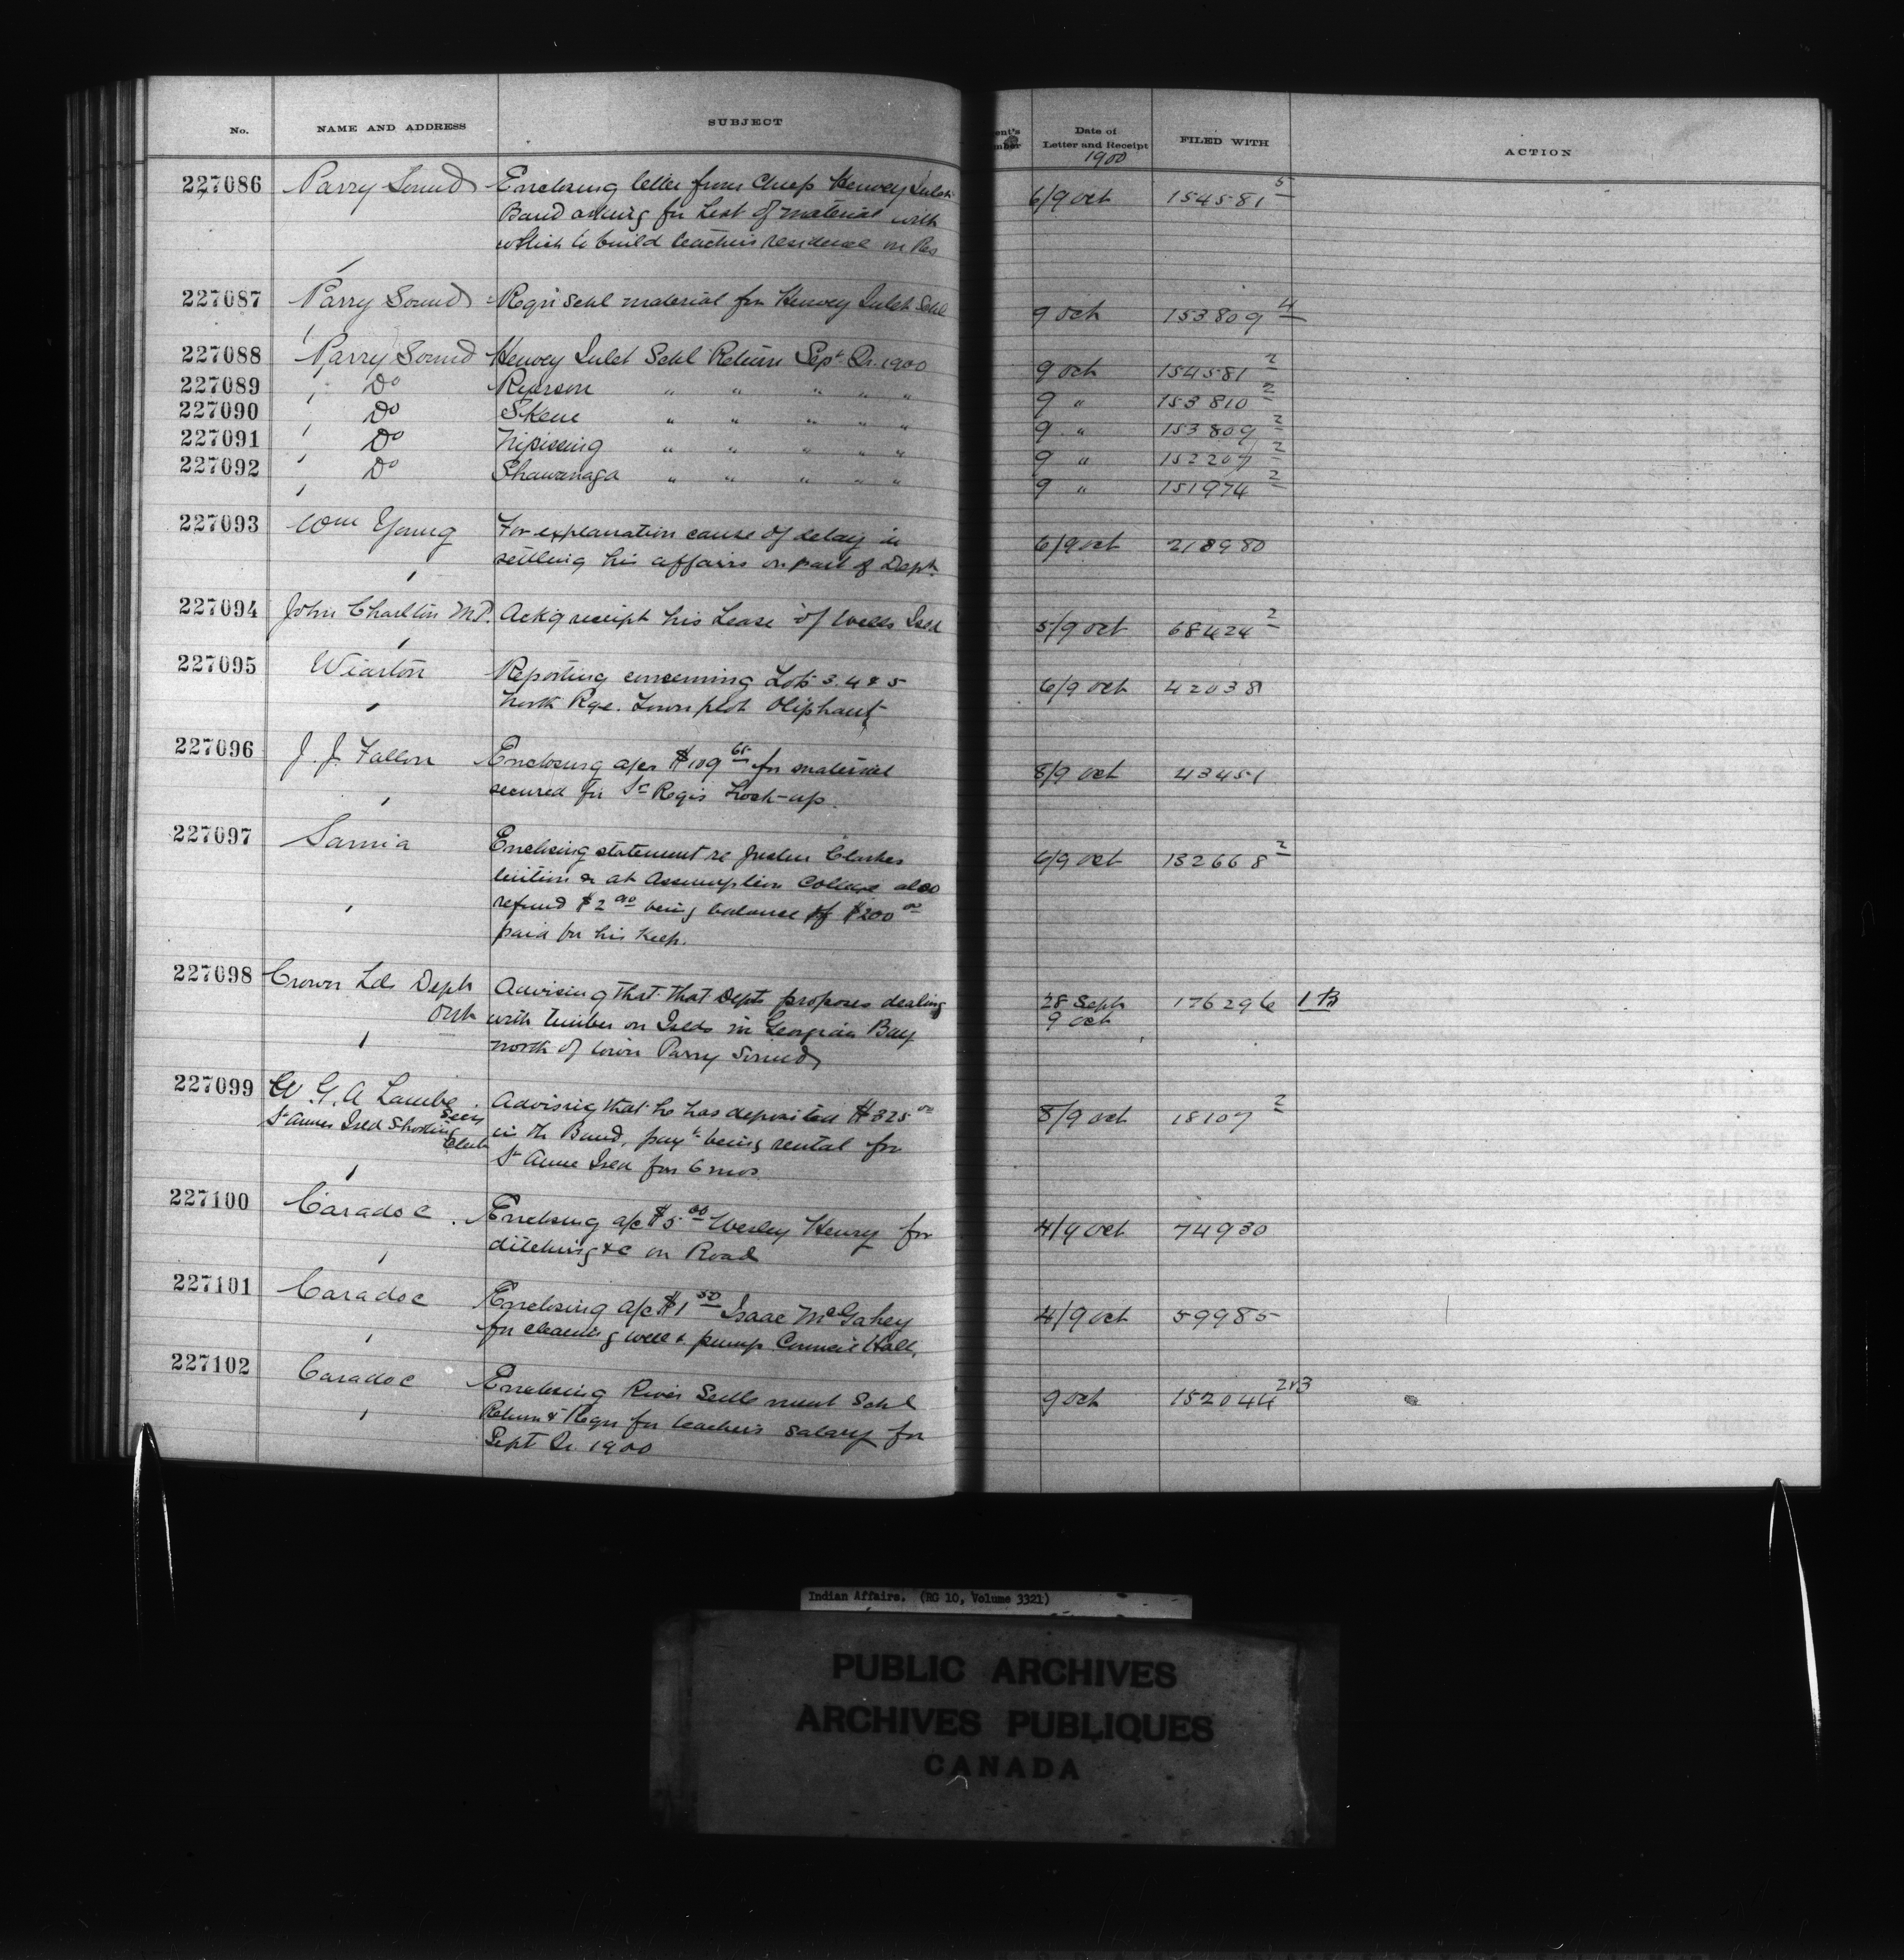 No. NAME AND ADDRESS SUBJECT
ent's Date of FILED WITH ACTION
mber Letter and Receipt
1900
227086 Parry Sound Enclosing letter from Chief Henvey Inlet 6/9 Oct 154581 5
Band asking for list of material with
which to build teacher's residence on Res
227087 Parry Sound Reqn Schl material for Henvey Inlet Schl 9 Oct 153809 4
227088 Parry Sound Henvey Inlet Schl Return Sept Qr. 1900 9 Oct 154581 2
227089 Do Ryerson " " " " " 9 " 153810 2
227090 Do Skene " " " " " 9 " 153809 2
227091 Do Nipissing " " " " " 9 " 152207 2
227092 Do Shawanaga " " " " " 9 " 151974 2
227093 Wm Young For explanation cause of delay in 6/9 Oct 218980
settling his affairs on part of Dept.
227094 John Charlton M.P. Ackg receipt his Lease of Wells Isld 5/9 Oct 68424 2
227095 Wiarton Reporting concerning Lots 3.4 & 5 6/9 Oct 42038
North Rge. Town plot Oliphant
227096 J. J. Fallon Enclosing a/cs $109 65 for material 8/9 Oct 43451
secured for St Regis Lock-up.
227097 Sarnia Enclosing statement re Clarkes 6/9 Oct 132668 2
tuition at Assumption College also
refund $2 00 being balance of $200 00
paid for his Keep.
227098 Crown Lds Dept Advising that that Dept proposes dealing 28 Sept 176296 1 B
Ont with timber on Islds in Georgian Bay 9 Oct
north of town Parry Sound
227099 W. G. A Lambe Advising that he has deposited $325 00 8/9 Oct 18107 2
Secy
St Annes Isld Shooting Club in the Band, payt being rental for
St Anne Isld for 6 mos.
227100 Caradoc. Enclosing a/c $5 00 Wesley Henry for 4/9 Oct 74930
ditching &c on Road
227101 Caradoc Enclosing a/c $1 50 Isaac McGahey 4/9 Oct 59985
for cleaning well & pump Council Hall.
227102 Caradoc Enclosing River Settlement Schl 9 Oct 152044 2&3
Return & Reqn for teacher's salary for
Sept Qr 1900
Indian Affairs. (RG 10, Volume 3321)
PUBLIC ARCHIVES
ARCHIVES PUBLIQUES
CANADA